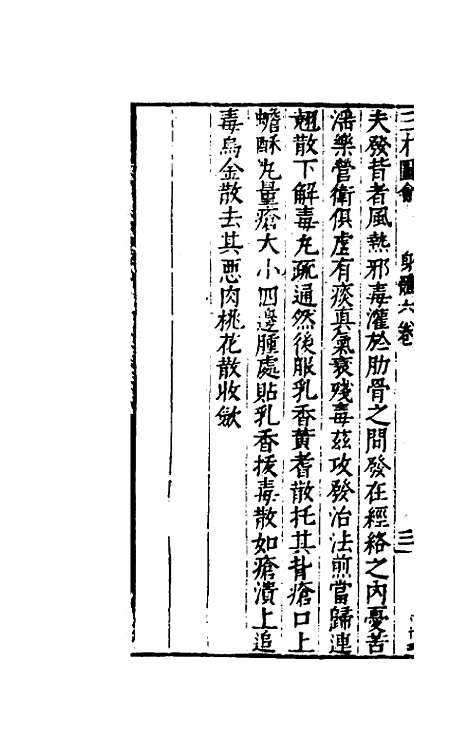 三才圖會 身體六卷 三
夫發背者風熱邪毒灌於肋骨之間發在經絡之內憂苦
滛樂營衛俱虛有痰真氣衰殘毒茲攻發治法煎當歸連
翹散下解毒丸疏通然後服乳香黃耆散托其背瘡口上
蟾酥丸量瘡大小四邊腫處貼乳香拔毒散如瘡潰上追
毒烏金散去其惡肉桃花散收斂